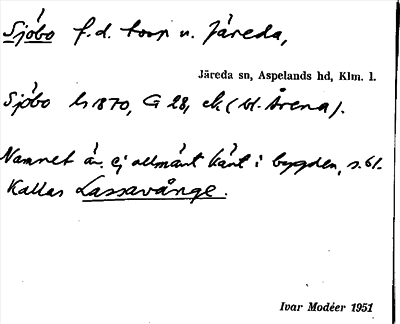 Sjöbo f.d. torp u. Järeda,
Järeda sn, Aspelands hd, Klm. l.
Sjöbo h 1870, G 28, ek. (bl. Årena).
Namnet är ej allmänt känt i bygden, s. bl.
Kallas Lassavånge.
Ivar Modéer 1951